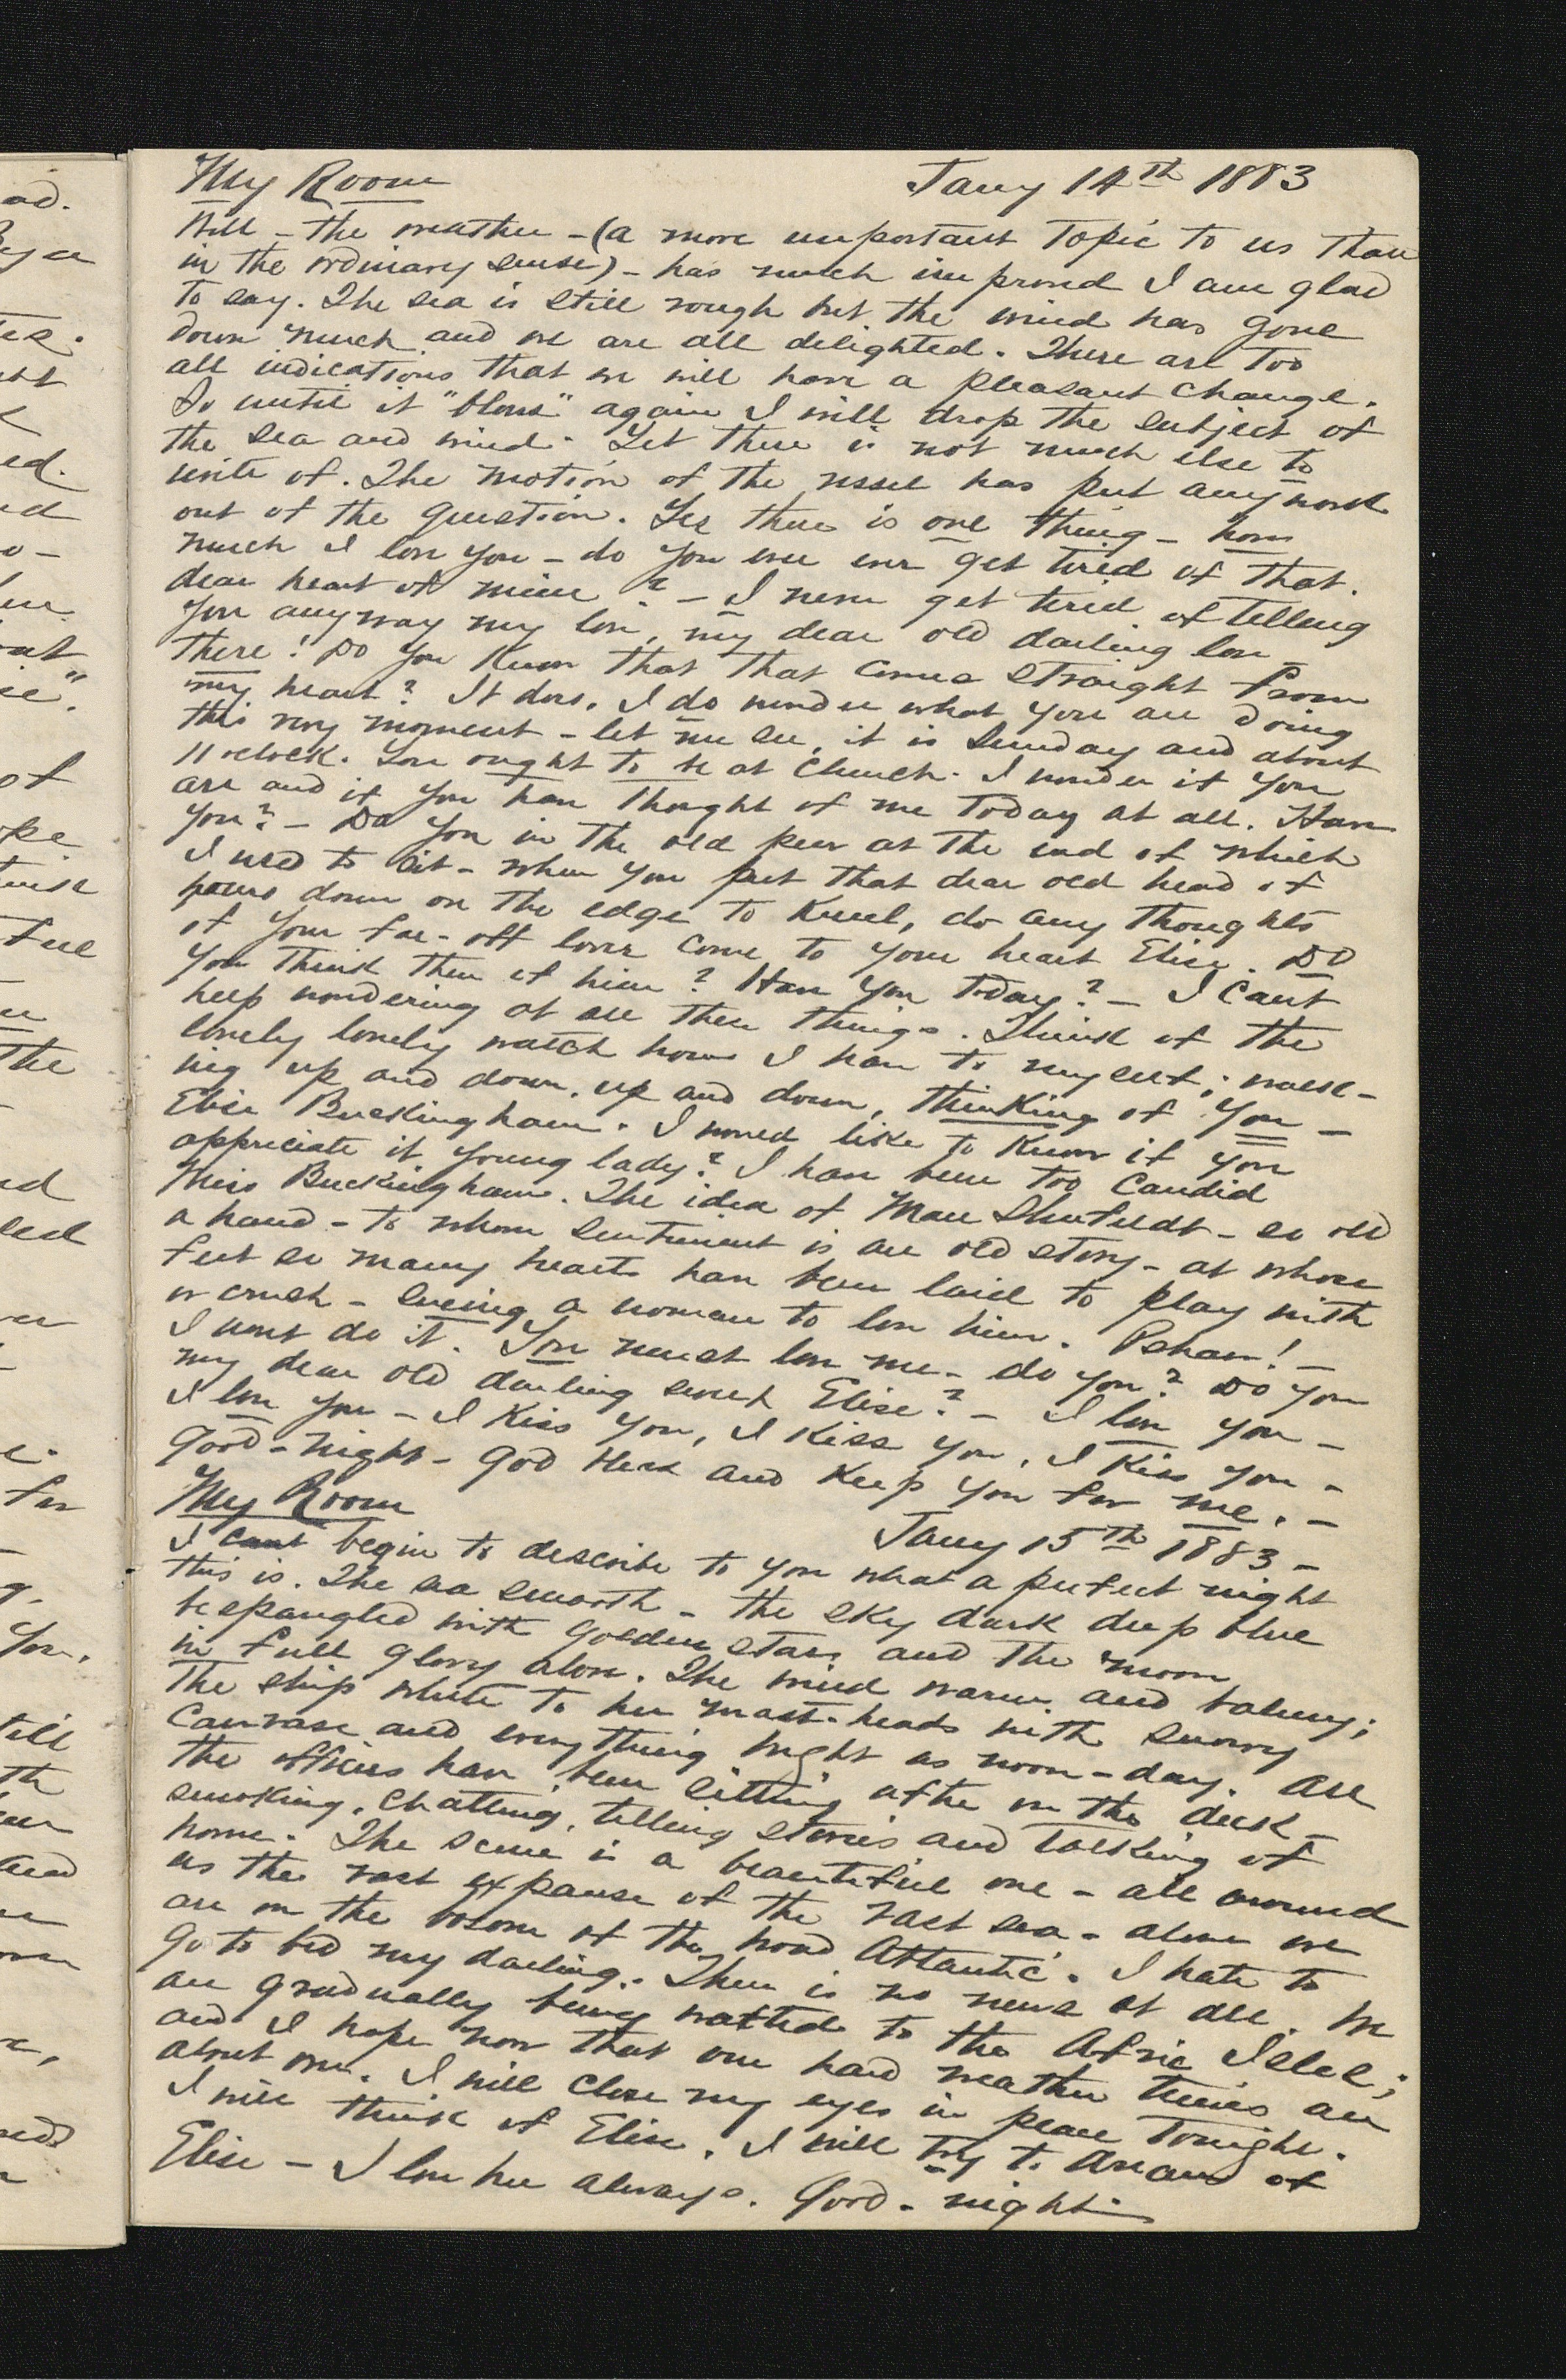 My Room Jany 14th 1883
Well - the weather - (a more important topic to us than
in the ordinary sense) - has much improved I am glad
to say. The sea is still rough but the wind has gone
down much and we are all delighted. There are too
all indications that we will have a pleasant change.
So until it "blows" again I will drop the subject of
the sea and wind. Yet there is not much else to
write of. The motion of the vessel has put any work
out of the question. Yes there is one thing - how
much I love you - do you ever ever get tired of that.
dear heart of mine? - I never get tired of telling
you anyway my love, my dear old darling love
There! Do you know that that comes straight from
my heart? It does. I do wonder what you are doing
this very moment - let me see, it is Sunday and about
11 oclock. You ought to be at Church. I wonder if you
are and if you have thought of me today at all. Have
you? - Do you in the old pew at the end of which
I used to sit - when you put that dear old head of
yours down on the edge to kneel, do any thoughts
of your far-off lover come to your heart Elise. Do
you think then of him? Have you today? - I cant
keep wondering at all these things. Think of the
lonely lonely watch hours I have to myself; walk-
ing up and down, up and down, thinking of you -
Elise Buckingham. I would like to know if you
appreciate it young lady? I have been too candid
Miss Buckingham. The idea of Man Shufeldt - so old
a hand - to whom sentiment is an old story - at whose
feet so many hearts have been laid to play with
or crush - sueing a woman to love him. Pshaw! -
I wont do it. You must love me - do you? Do you
my dear old darling sweet Elise? - I love you -
I love you - I kiss you, I kiss you, I kiss you -
Good-night - God bless and keep you for me. -
My Room Jany 15th 1883 -
I cant begin to describe to you what a perfect night
this is. The sea smooth - the sky dark deep blue
bespangled with golden stars and the moon
in full glory above. The wind warm and balmy;
The ship white to her mast-heads with snowy
canvass and everything bright as noon-day. All
the officers have been sitting aft on the deck -
smoking, chatting, telling stories and talking of
home. The scene is a beautiful one - all around
us the vast expanse of the vast sea - alone we
are on the bosom of the broad Atlantic. I hate to
go to bed my darling. There is no news at all. We
are gradually being wafted to the Afric Isles;
and I hope now that our hard weather times are
about over. I will close my eyes in peace tonight.
I will think of Elise. I will try to dream of
Elise - I love her always. Good-night -